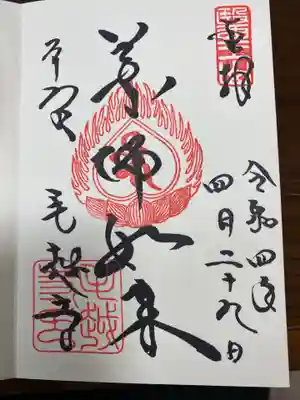 奉拝
令和四年
四月二十九日
薬師如来
平泉 毛越寺
毛越寺